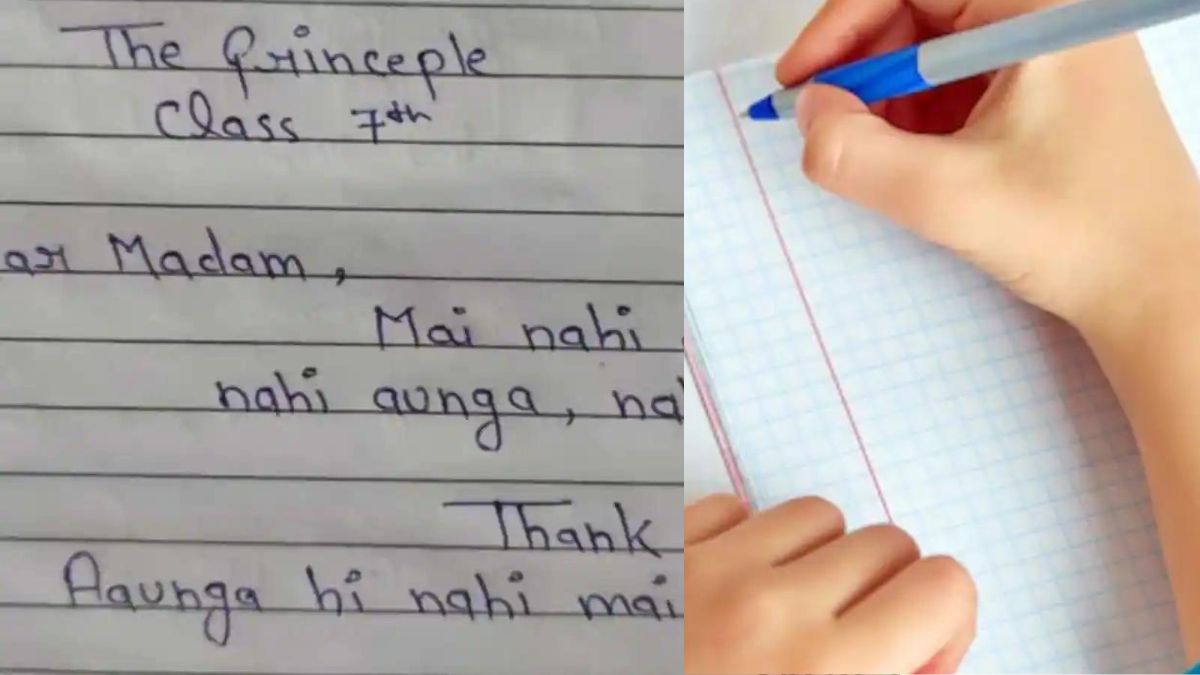 The Princeple
Class 7th
ar Madam,
Mai nahi
nahi aunga, na
Thank
Aaunga hi nahi mai